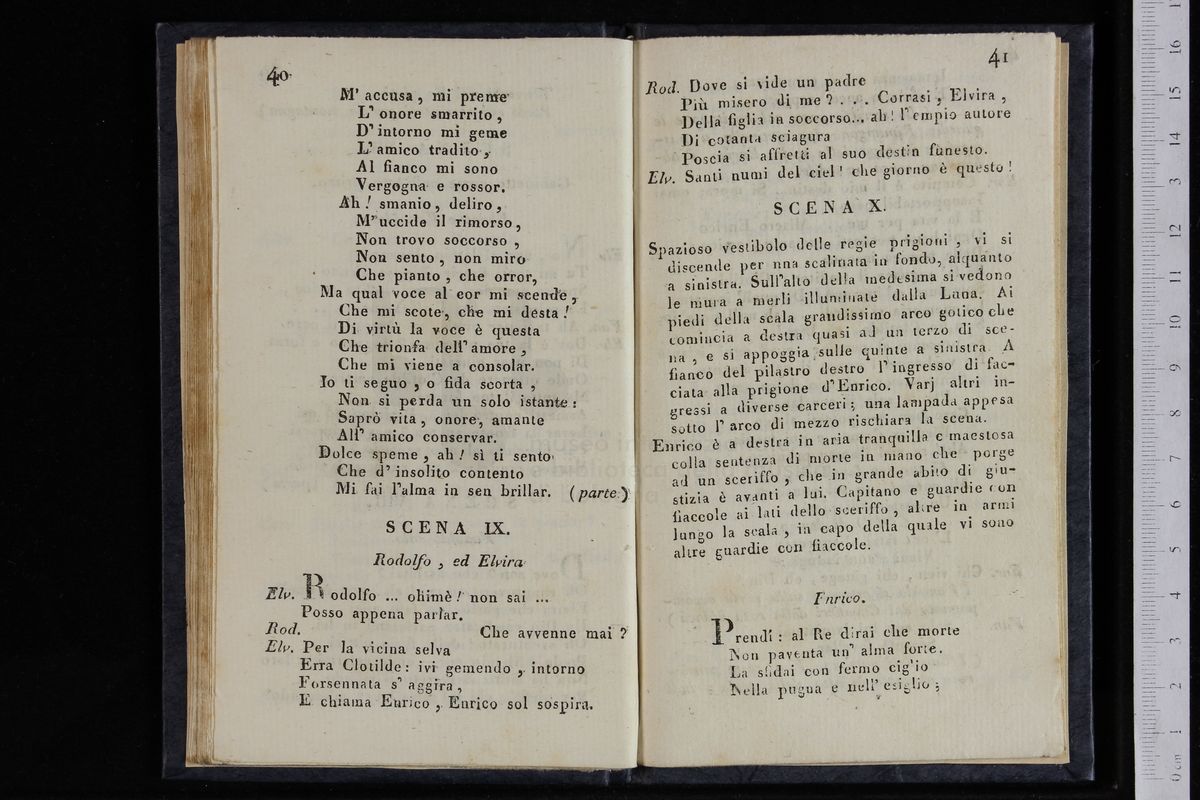 40
M' accusa, mi preme
L' onore smarrito,
D' intorno mi geme
L' amico tradito,
Al fianco mi sono
Vergogna e rossor.
Ah! smanio, deliro,
M' uccide il rimorso,
Non trovo soccorso,
Non sento, non miro
Che pianto, che orror,
Ma qual voce al cor mi scende,
Che mi scote, che mi desta!
Di virtù la voce è questa
Che trionfa dell' amore,
Che mi viene a consolar.
Io ti seguo, o fida scorta,
Non si perda un solo istante:
Saprò vita, onore, amante
All' amico conservar.
Dolce speme, ah! sì ti sento
Che d' insolito contento
Mi fai l'alma in sen brillar. (parte)
SCENA IX.
Rodolfo, ed Elvira
Elv. Rodolfo ... ohimè! non sai ...
Posso appena parlar.
Rod. Che avvenne mai?
Elv. Per la vicina selva
Erra Clotilde: ivi gemendo, intorno
Forsennata s' aggira,
E chiama Enrico, Enrico sol sospira.
41
Rod. Dove si vide un padre
Più misero di me? . . . Corrasi, Elvira,
Della figlia in soccorso... ah! l' empio autore
Di cotanta sciagura
Poscia si affretti al suo destin funesto.
Elv. Santi numi del ciel! che giorno è questo!
SCENA X.
Spazioso vestibolo delle regie prigioni, vi si
discende per una scalinata in fondo, alquanto
a sinistra. Sull'alto della medesima si vedono
le mura a merli illuminate dalla Luna. Ai
piedi della scala grandissimo arco gotico che
comincia a destra quasi ad un terzo di sce-
na, e si appoggia sulle quinte a sinistra. A
fianco del pilastro destro l' ingresso di fac-
ciata alla prigione d' Enrico. Varj altri in-
gressi a diverse carceri; una lampada appesa
sotto l' arco di mezzo rischiara la scena.
Enrico è a destra in aria tranquilla e maestosa
colla sentenza di morte in mano che porge
ad un sceriffo, che in grande abito di giu-
stizia è avanti a lui. Capitano e guardie con
fiaccole ai lati dello sceriffo, altre in armi
lungo la scala, in capo della quale vi sono
altre guardie con fiaccole.
Enrico.
Prendi: al Re dirai che morte
Non paventa un' alma forte.
La sfidai con fermo ciglio
Nella pugna e nell' esiglio;
0 cm 1 2 3 4 5 6 7 8 9 10 11 12 13 14 15 16